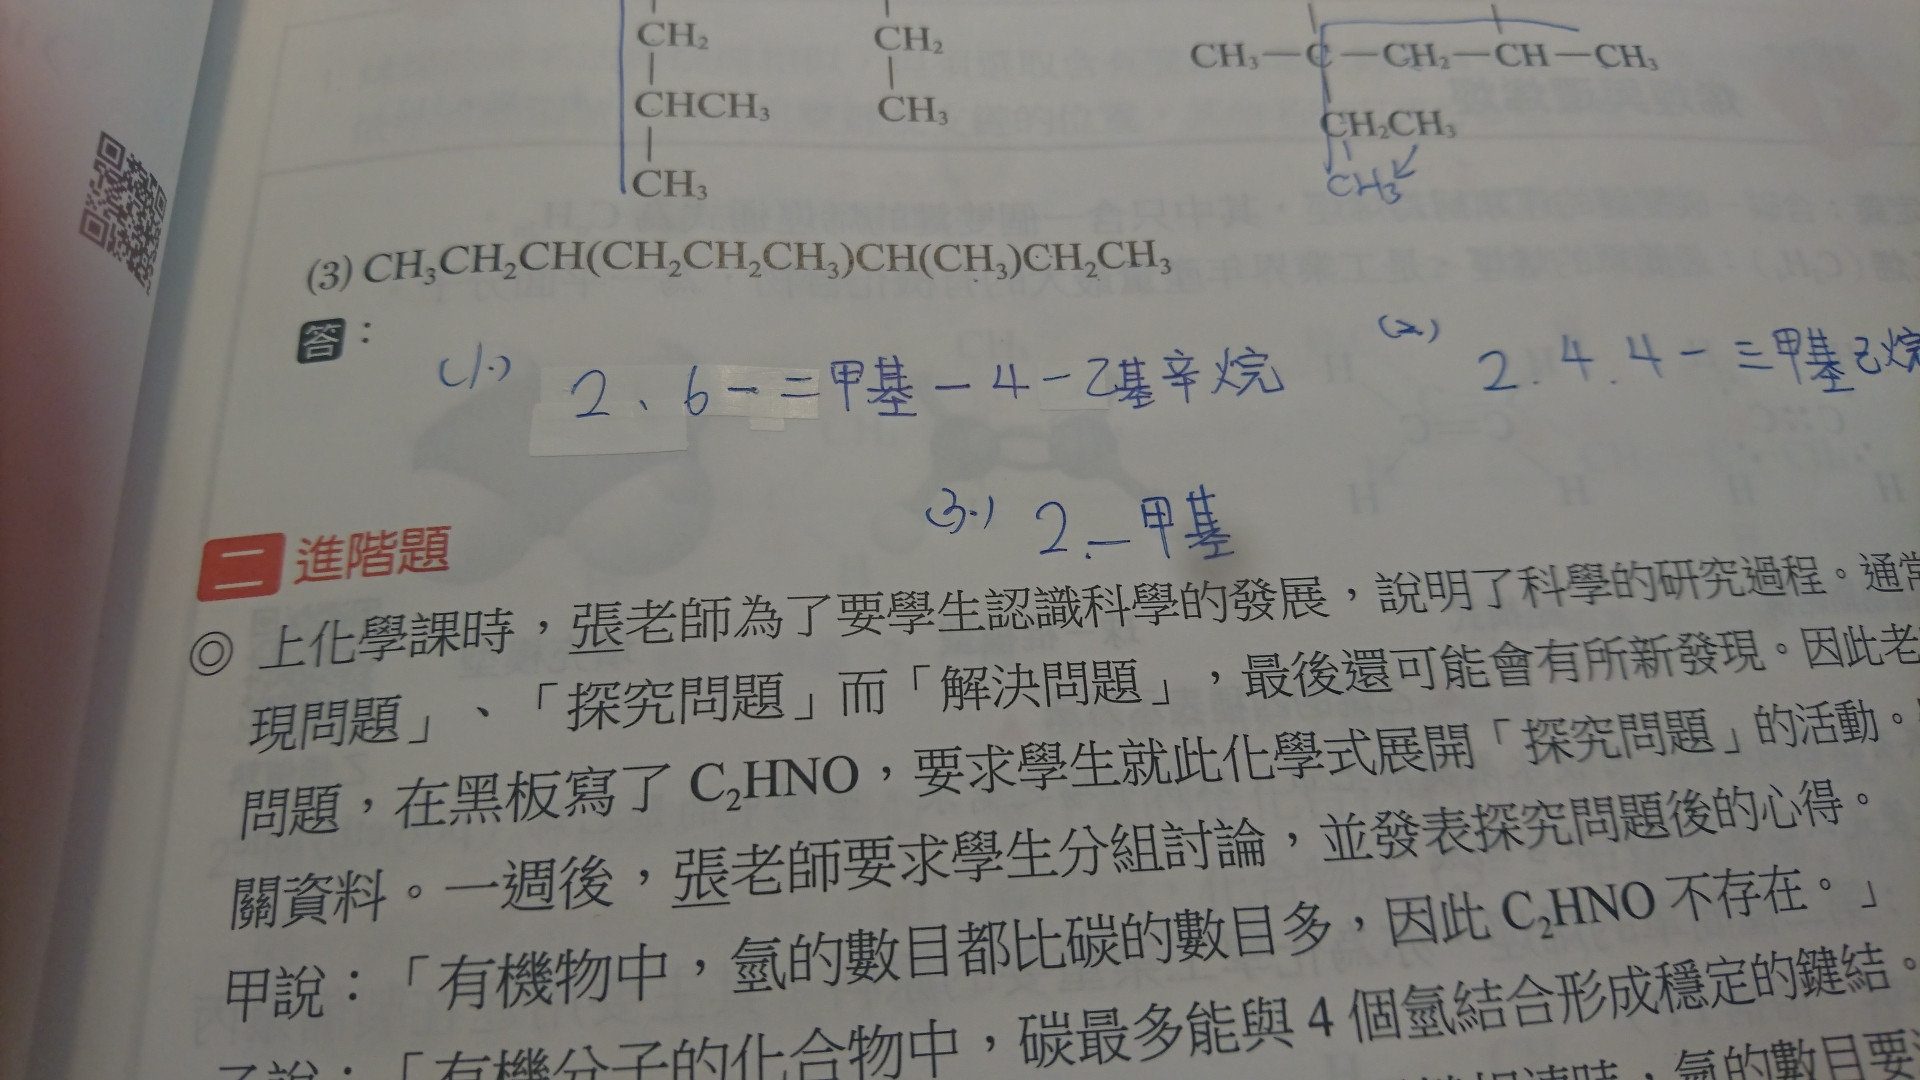 CH₂ CH₂
CH₃—C—CH₂—CH—CH₃
CHCH₃ CH₃ CH₂CH₃
CH₃ CH₃
(3) CH₃CH₂CH(CH₂CH₂CH₃)CH(CH₃)CH₂CH₃
答:
(1.) 2、6-二甲基-4-乙基辛烷 (2) 2.4.4-三甲基己烷
(3.) 2.-甲基
二 進階題
◎ 上化學課時,張老師為了要學生認識科學的發展,說明了科學的研究過程。通常
現問題」、「探究問題」而「解決問題」,最後還可能會有所新發現。因此老
問題,在黑板寫了 C₂HNO,要求學生就此化學式展開「探究問題」的活動。
關資料。一週後,張老師要求學生分組討論,並發表探究問題後的心得。
甲說:「有機物中,氫的數目都比碳的數目多,因此 C₂HNO 不存在。」
乙說:「有機分子的化合物中,碳最多能與 4 個氫結合形成穩定的鍵結。
氫的數目要